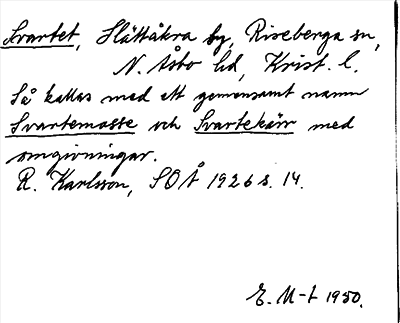 Svartet, Slättåkra by, Riseberga sn,
N. Åsbo hd, Krist. l.
Så kallas med ett gemensamt namn
Svartemosse och Svartekärr med
omgivningar.
R. Karlsson, SOÅ 1926 s. 14.
E. M-t 1950.